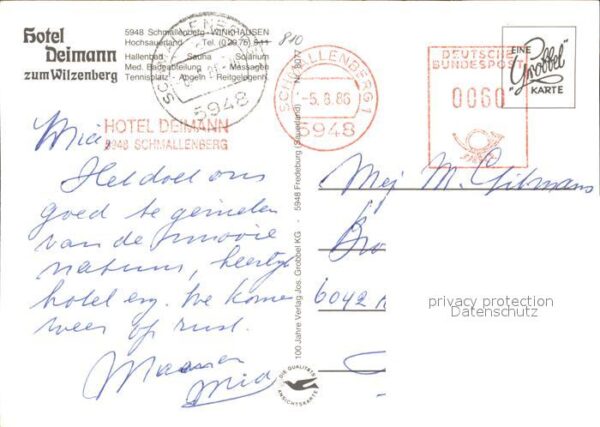 Hotel
Deimann
zum Wilzenberg
5948 Schmallenberg - WINKHAUSEN
Hochsauerland Tel. (0 29 75) 8 11
Hallenbad Sauna Solarium
Med. Badeabteilung Massagen
Tennisplatz Angeln Reitgelegenh.
810
5948
SCHMALLENBERG 1
-5.8.86
5948
DEUTSCHE
BUNDESPOST
0060
EINE
Grobbel
KARTE
HOTEL DEIMANN
5948 SCHMALLENBERG
Het doel ons
goed te genieten
van de mooie
natuur, heerlijk
hotel enz. We komen
weer op rust.
Mej M. 
Bro
6042
100 Jahre Verlag Jos. Grobbel KG - 5948 Fredeburg (Sauerland) Nr. 8077
DIE QUALITÄTS
ANSICHTSKARTE
privacy protection
Datenschutz